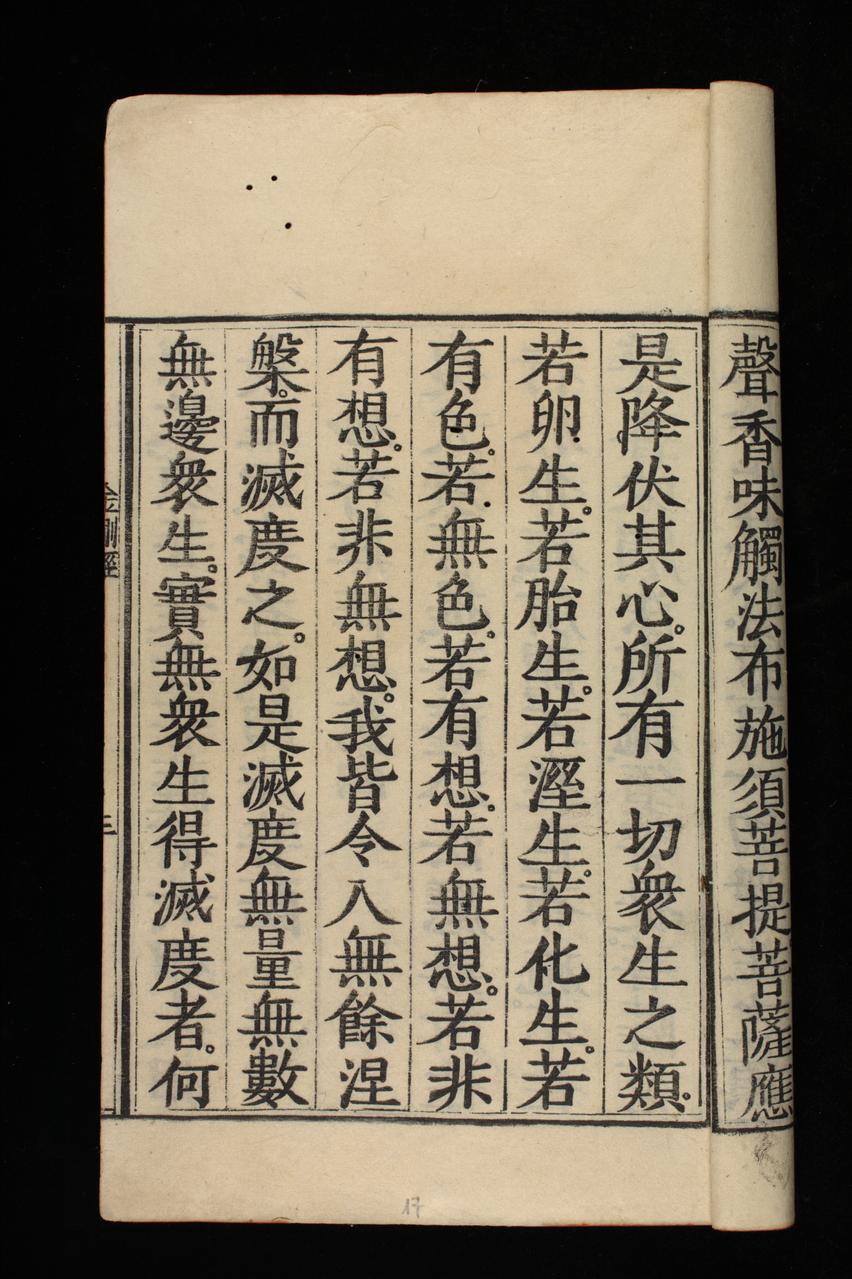 聲香味觸法布施須菩提菩薩應
是降伏其心。所有一切衆生之類。
若卵生。若胎生。若溼生。若化生。若
有色。若無色。若有想。若無想。若非
有想。若非無想。我皆令入無餘涅
槃。而滅度之。如是滅度無量無數
無邊衆生。實無衆生得滅度者。何
金剛經
17